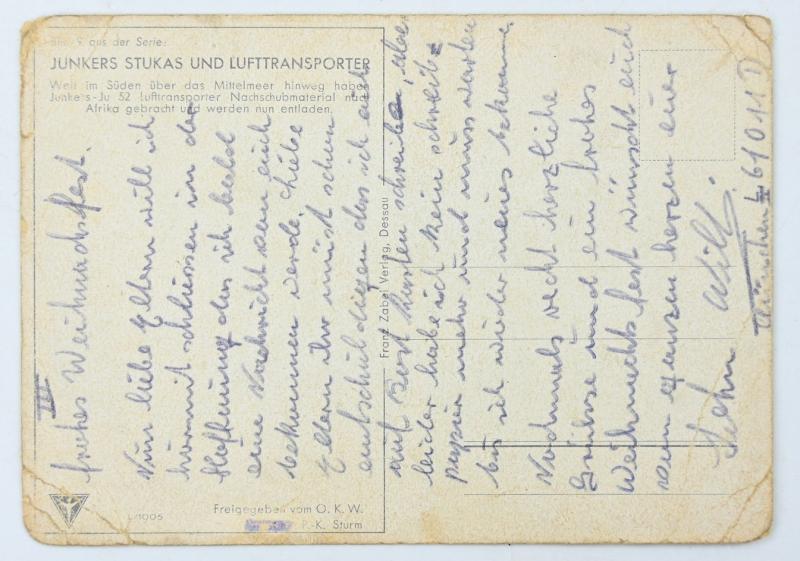 Bild 9 aus der Serie:
JUNKERS STUKAS UND LUFTTRANSPORTER
Weit im Süden über das Mittelmeer hinweg haben
Junkers-Ju 52 Lufttransporter Nachschubmaterial nach
Afrika gebracht und werden nun entladen.
Franz Zabel Verlag, Dessau
L/1005
Freigegeben vom O. K. W.
P.-K. Sturm
III
frohes Weihnachsfest.
Nun liebe Eltern will ich
hiermit schliessen in der
Hoffnung das ich bald
eine Nachricht von euch
bekommen werde. Liebe
Eltern ihr müst schon
entschuldigen das ich euch
auf Post Karten schreibe, aber
leider habe ich kein schreib
papier mehr und muss warten
bis ich wieder neues bekomme.
Nochmals recht herzliche
Grüsse und ein frohes
Weihnachtsfest wünscht euch
von ganzen herzen euer
Sohn Willi.
München 2 61011 D